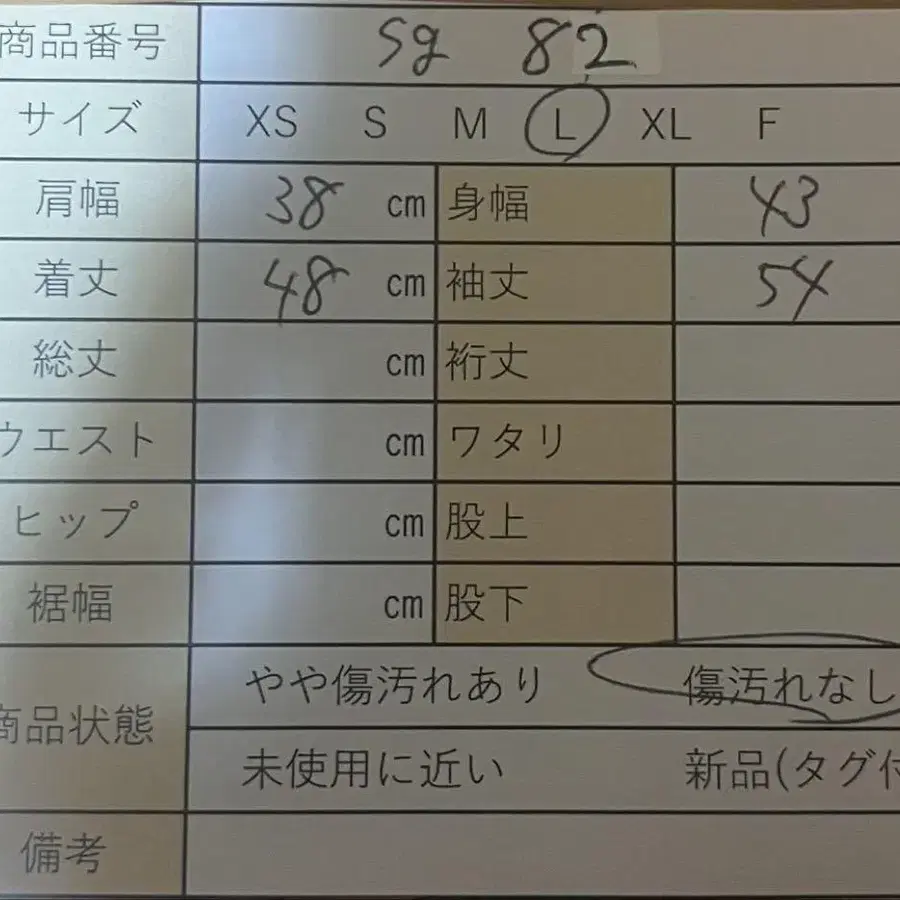 商品番号 sg 82
サイズ XS S M L XL F
肩幅 38 cm 身幅 43
着丈 48 cm 袖丈 54
総丈 cm 裄丈
ウエスト cm ワタリ
ヒップ cm 股上
裾幅 cm 股下
商品状態 やや傷汚れあり 傷汚れなし
未使用に近い 新品(タグ付
備考